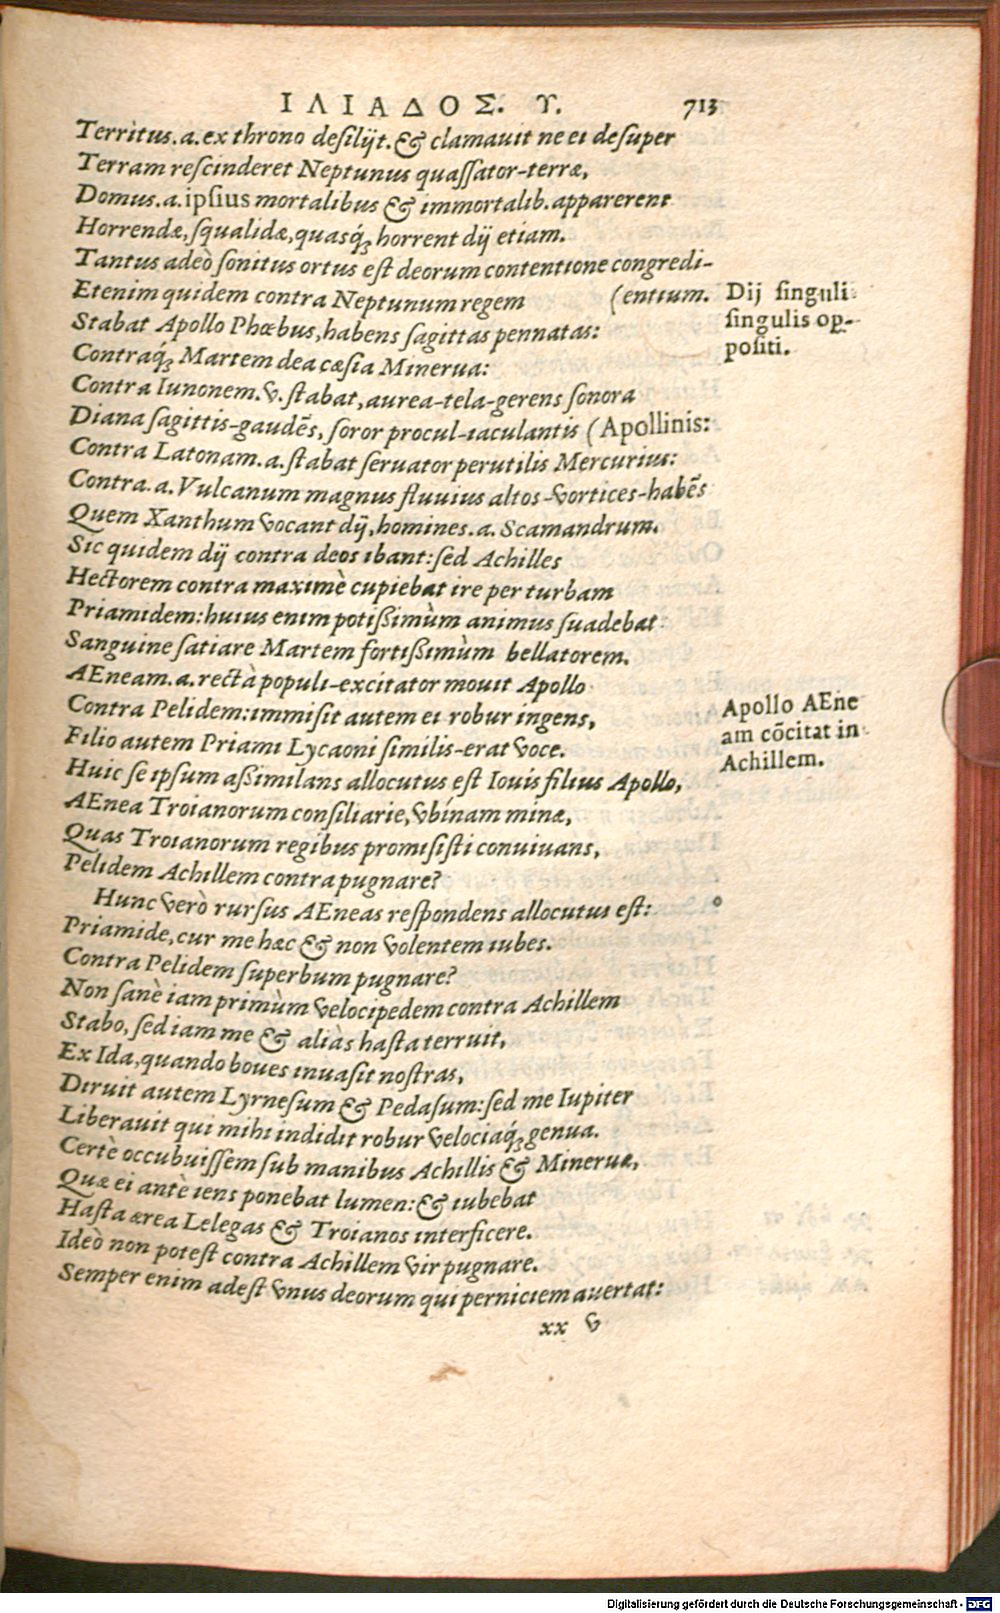 ΙΛΙΑΔΟΣ. Υ. 713
Territus.a.ex throno desilijt.& clamauit ne ei desuper
Terram rescinderet Neptunus quassator-terræ,
Domus.a.ipsius mortalibus & immortalib.apparerent
Horrendæ,squalidæ,quasq́; horrent dij etiam.
Tantus adeò sonitus ortus est deorum contentione congredi-
Etenim quidem contra Neptunum regem (entium.
Stabat Apollo Phœbus,habens sagittas pennatas:
Contraq́; Martem dea cæsia Minerua:
Contra Iunonem.v.stabat,aurea-tela-gerens sonora
Diana sagittis-gaudēs, soror procul-iaculantis (Apollinis:
Contra Latonam.a.stabat seruator perutilis Mercurius:
Contra.a.Vulcanum magnus fluuius altos-vortices-habēs
Quem Xanthum vocant dij,homines.a.Scamandrum.
Sic quidem dij contra deos ibant:sed Achilles
Hectorem contra maximè cupiebat ire per turbam
Priamidem:huius enim potißimùm animus suadebat
Sanguine satiare Martem fortißimùm bellatorem.
AEneam.a.rectà populi-excitator mouit Apollo
Contra Pelidem:immisit autem ei robur ingens,
Filio autem Priami Lycaoni similis-erat voce.
Huic se ipsum aßimilans allocutus est Iouis filius Apollo,
AEnea Troianorum consiliarie,vbínam minæ,
Quas Troianorum regibus promisisti conuiuans,
Pelidem Achillem contra pugnare?
Hunc verò rursus AEneas respondens allocutus est:
Priamide,cur me hæc & non volentem iubes.
Contra Pelidem superbum pugnare?
Non sanè iam primùm velocipedem contra Achillem
Stabo, sed iam me & aliàs hasta terruit,
Ex Ida,quando boues inuasit nostras,
Diruit autem Lyrnesum & Pedasum:sed me Iupiter
Liberauit qui mihi indidit robur velociaq́; genua.
Certè occubuissem sub manibus Achillis & Mineruæ,
Quæ ei antè iens ponebat lumen:& iubebat
Hasta ærea Lelegas & Troianos interficere.
Ideò non potest contra Achillem vir pugnare.
Semper enim adest vnus deorum qui perniciem auertat:
xx v
Dij singuli
singulis op-
positi.
Apollo AEne
am cōcitat in
Achillem.
Digitalisierung gefördert durch die Deutsche Forschungsgemeinschaft - DFG